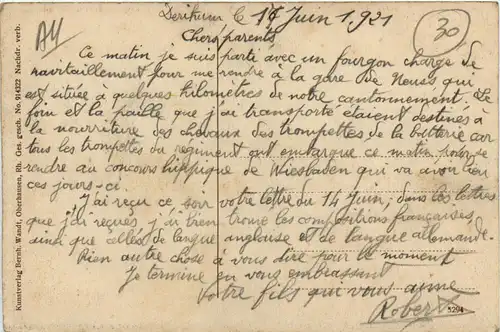 Derikum, le 17 Juin 1921
A4
30
Chers parents
Ce matin je suis parti avec un fourgon chargé de
ravitaillement pour me rendre à la gare de Neuss qui
est située à quelques kilomètres de notre cantonnement. Le
foin et la paille que j'ai transporté étaient destinés à
la nourriture des chevaux des trompettes de la batterie car
tous les trompettes du régiment ont embarqué ce matin pour se
rendre au concours hippique de Wiesbaden qui va avoir lieu
ces jours-ci.
J'ai reçu ce soir votre lettre du 14 Juin; dans les lettres
que j'ai reçues, j'ai bien trouvé les compositions françaises,
ainsi que celles de langue anglaise et de langue allemande.
Rien autre chose à vous dire pour le moment
Je termine en vous embrassant
Votre fils qui vous aime
Robert
5294
Kunstverlag Bernh. Wandt, Oberhausen, Rh. Ges. gesch. No. 64322 Nachdr. verb.